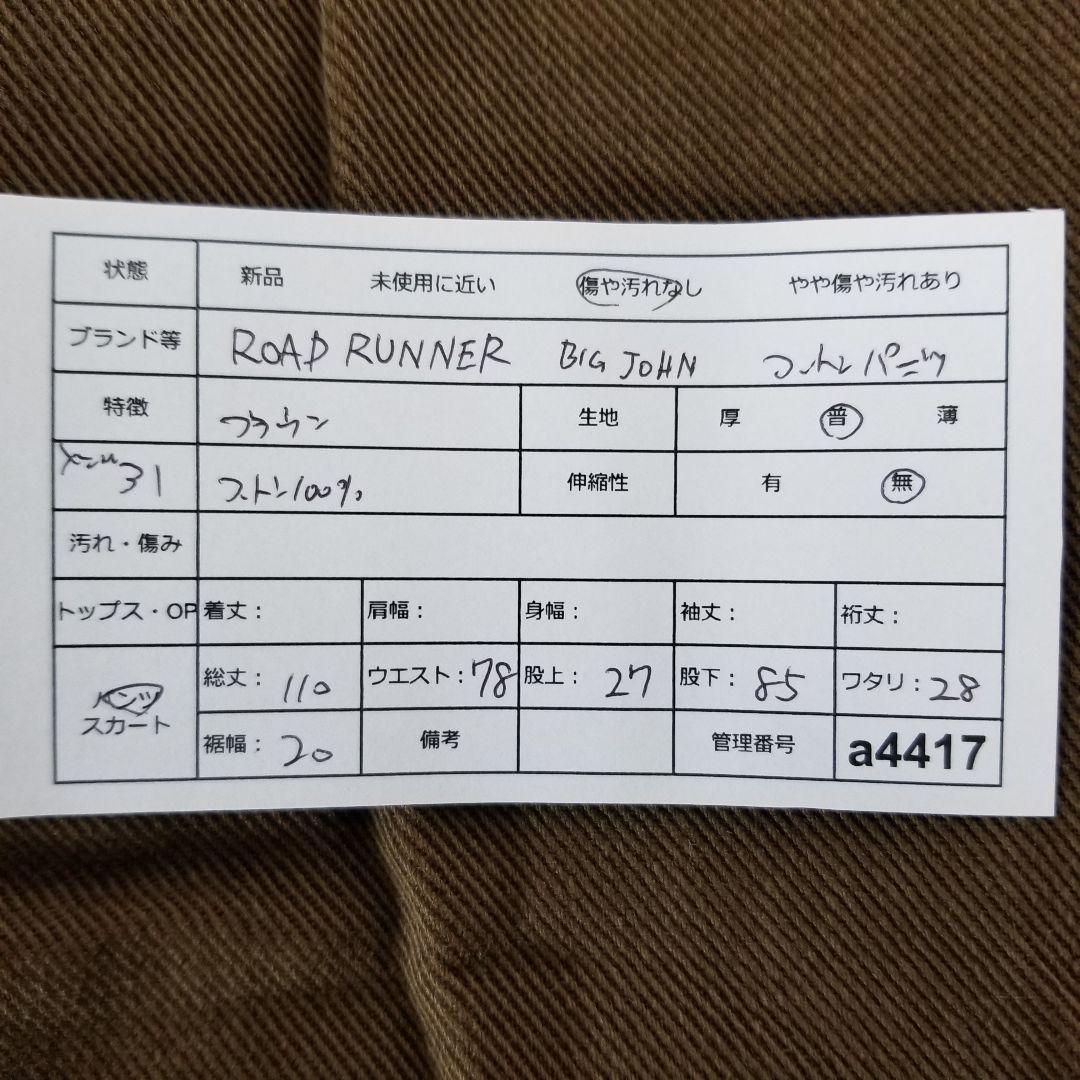 状態 新品 未使用に近い 傷や汚れなし やや傷や汚れあり
ブランド等 ROAD RUNNER BIG JOHN コットンパンツ
特徴 ブラウン 生地 厚 普 薄
メンズ31 コットン100% 伸縮性 有 無
汚れ・傷み
トップス・OP 着丈: 肩幅: 身幅: 袖丈: 裄丈:
パンツ 総丈: 110 ウエスト: 78 股上: 27 股下: 85 ワタリ: 28
スカート 裾幅: 20 備考 管理番号 a4417